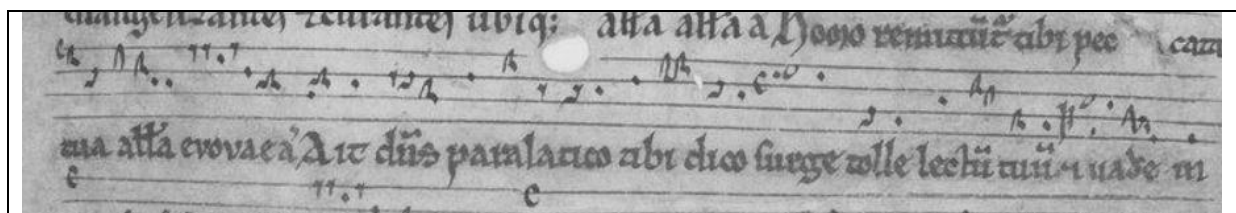 euangelizantes & curantes ubiq; alla alla a Homo remittūt᷑ tibi pec cata
tua alla evovae a Ait dn̄s paralatico tibi dico surge tolle lectū tuū ⁊ uade in